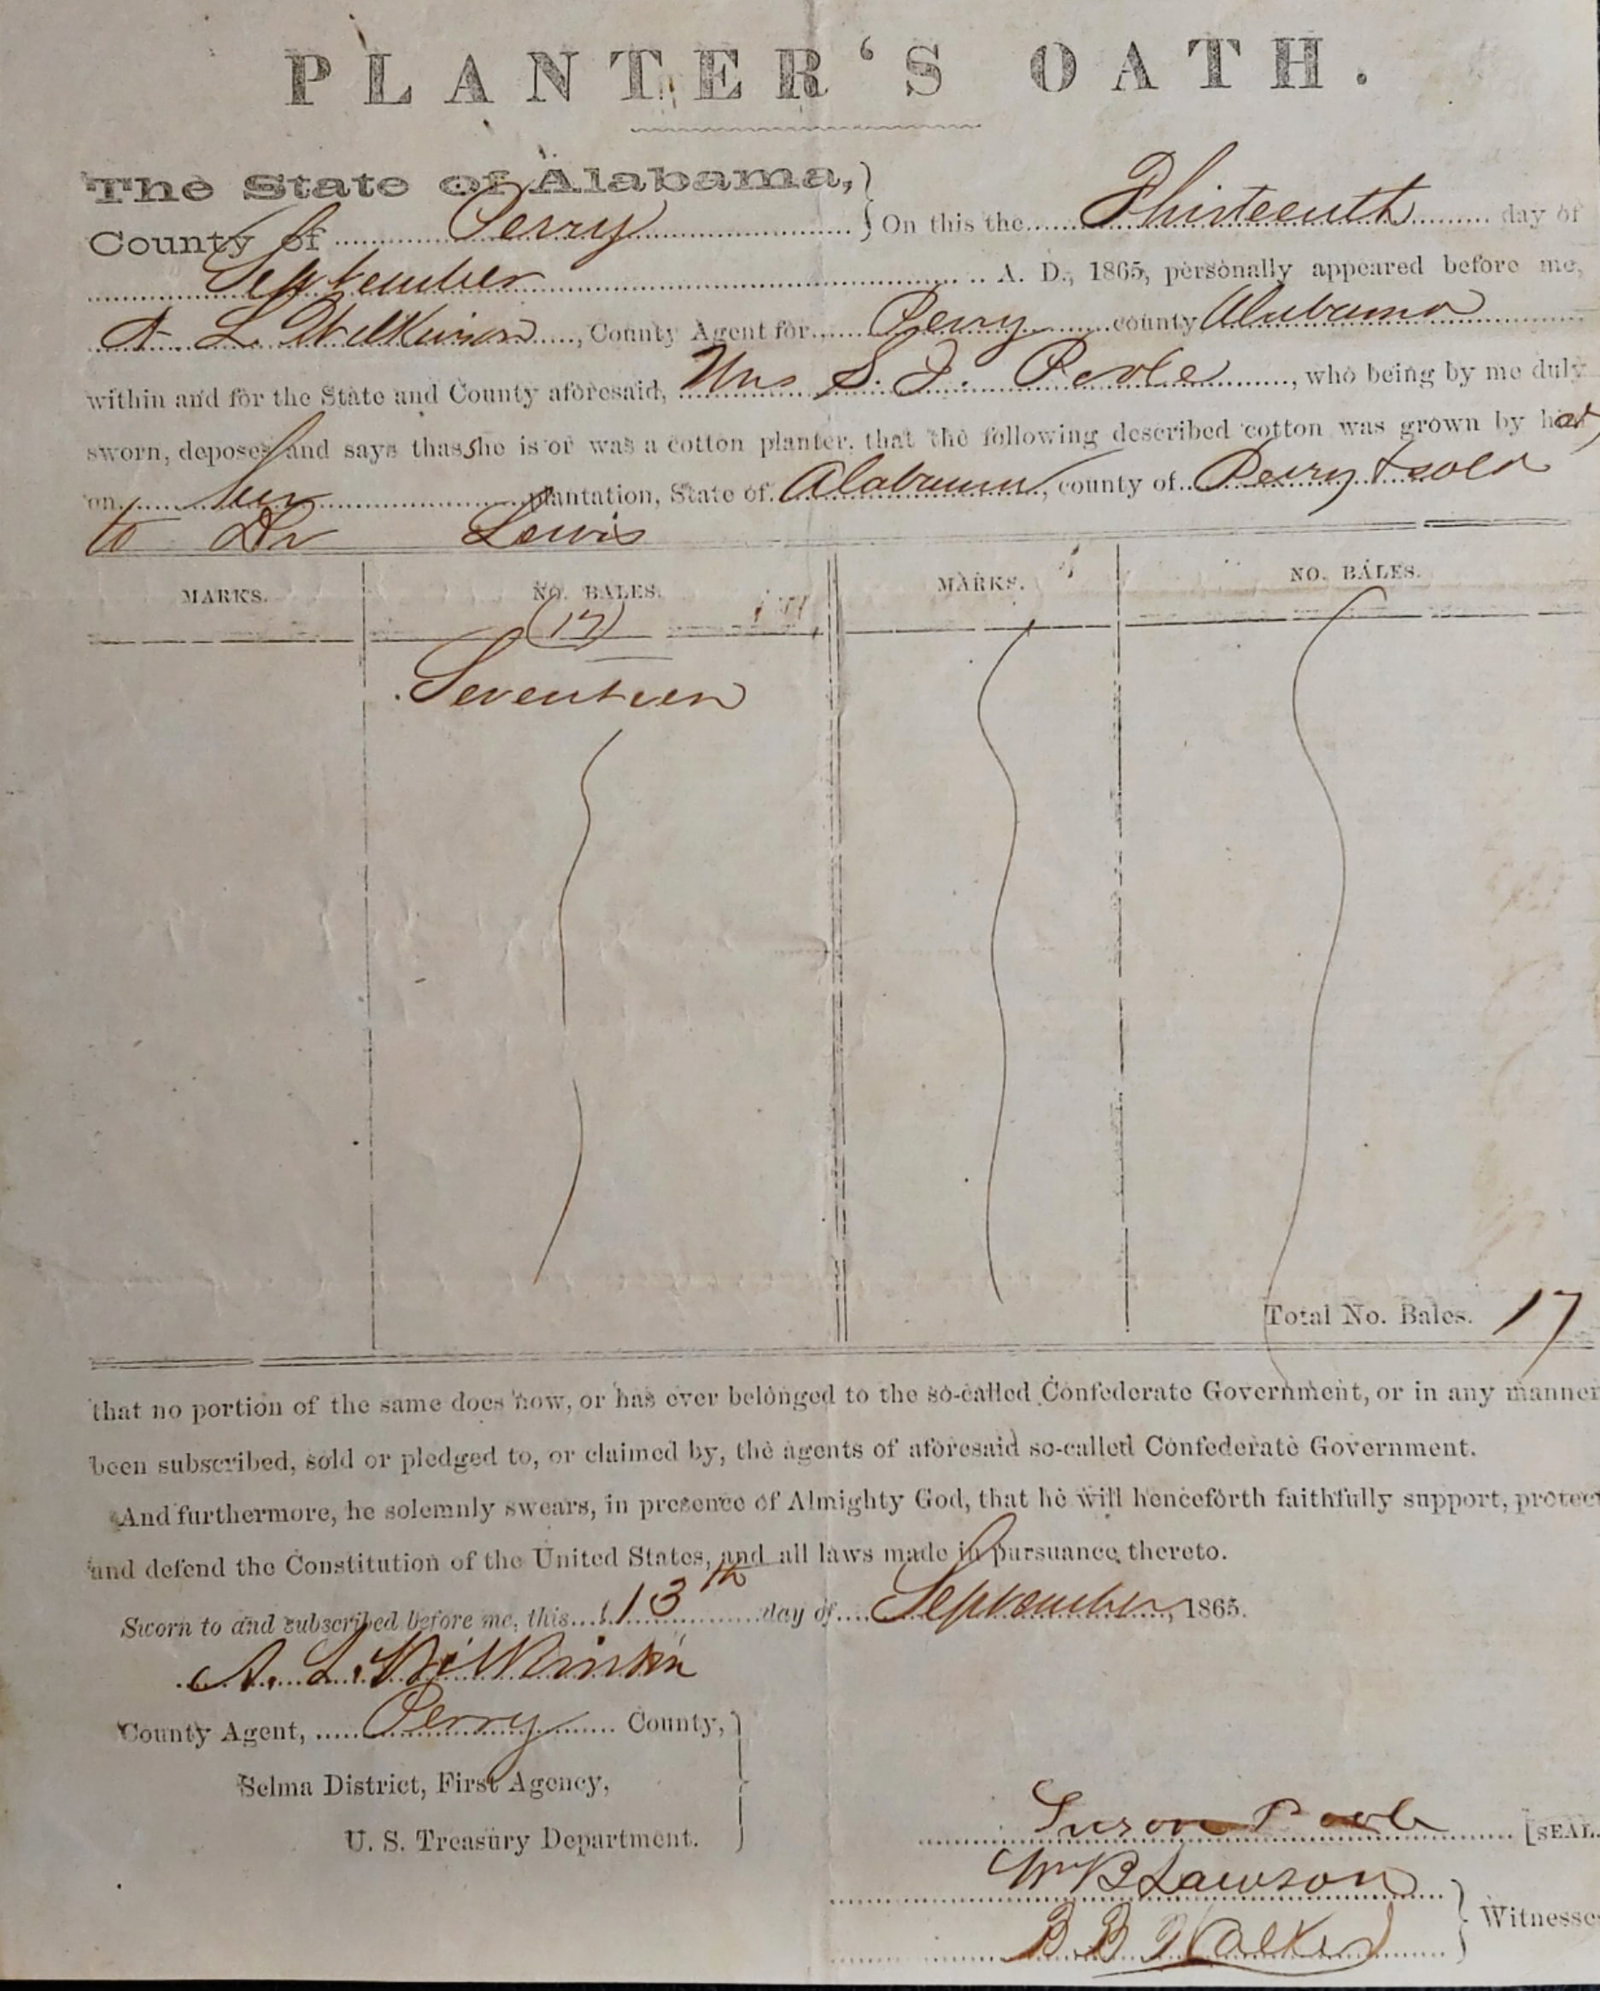 PLANTER'S OATH.
The State of Alabama,
County of Perry } On this the Thirteenth day of
September A. D., 1865, personally appeared before me,
A. L. Wilkinson, County Agent for Perry county Alabama
within and for the State and County aforesaid, Mrs S. J. Poole, who being by me duly
sworn, deposes and says that she is or was a cotton planter, that the following described cotton was grown by her
on her plantation, State of Alabama, county of Perry & sold
to Dr Lewis
MARKS. NO. BALES. MARKS. NO. BALES.
(17)
Seventeen
Total No. Bales. 17
that no portion of the same does now, or has ever belonged to the so-called Confederate Government, or in any manner
been subscribed, sold or pledged to, or claimed by, the agents of aforesaid so-called Confederate Government.
And furthermore, he solemnly swears, in presence of Almighty God, that he will henceforth faithfully support, protect
and defend the Constitution of the United States, and all laws made in pursuance thereto.
Sworn to and subscribed before me, this 13th day of September, 1865.
A. L. Wilkinson
County Agent, Perry County,
Selma District, First Agency,
U. S. Treasury Department.
Suson Poole [SEAL.
Wm B Lawson
B. B. Walker } Witnesses